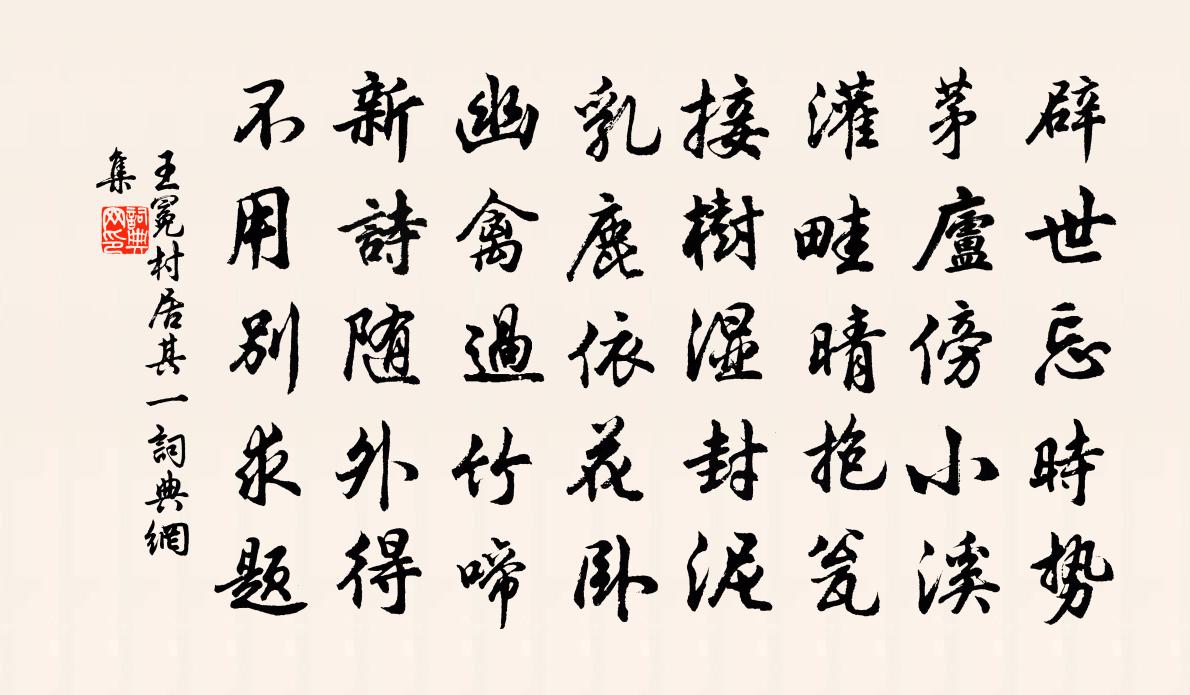 辟世忘時勢
茅廬傍小溪
灌畦晴抱瓮
接樹濕封泥
乳鹿依花卧
幽禽過竹啼
新詩随外得
不用别求題
王冕村居其一詞典網
集
詞典網印